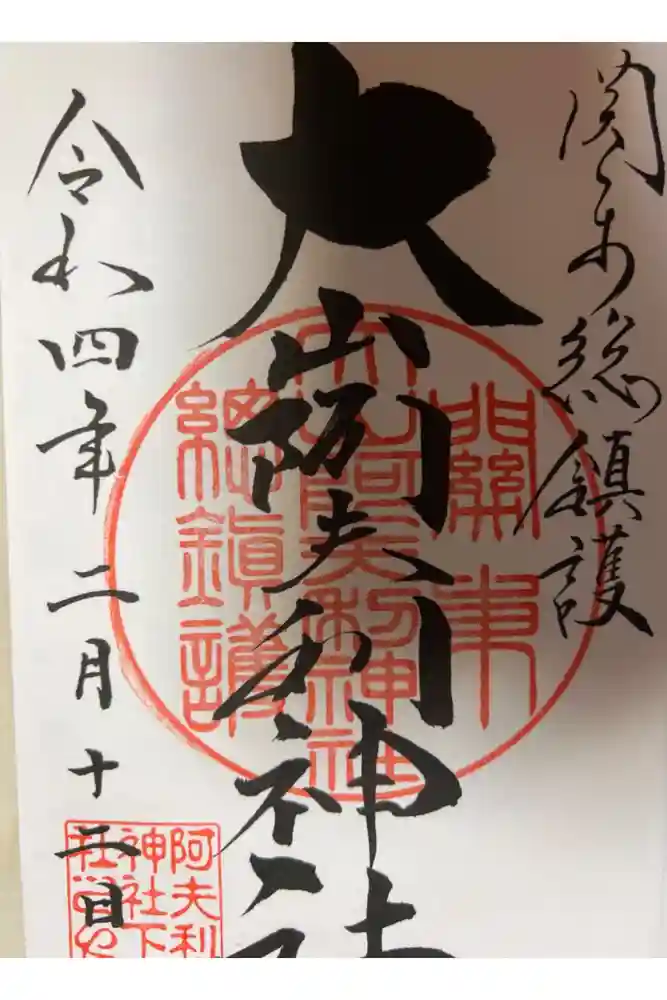 関東総鎮護
大山阿夫利神社
令和四年二月十二日
關東
大山阿夫利神社
總鎮護
阿夫利
神社下
社